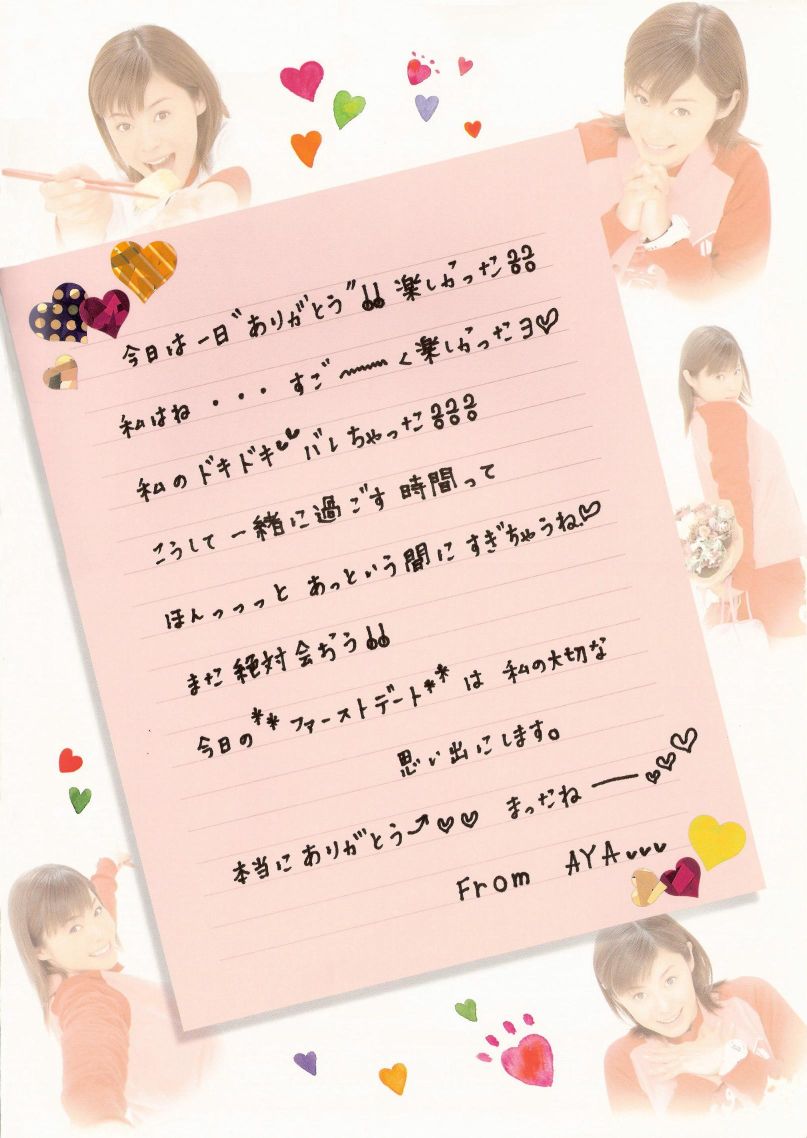 今日は一日"ありがとう"!! 楽しかった??
私はね・・・すご〜〜く楽しかったヨ♡
私のドキドキ♥♥バレちゃった???
こうして一緒に過ごす時間って
ほんっっっとあっという間にすぎちゃうね♡
また絶対会おう!!
今日の**ファーストデート**は私の大切な
思い出にします。
本当にありがとう⤴♡♡ まったねー♡♡♡
From AYA♥♥♥